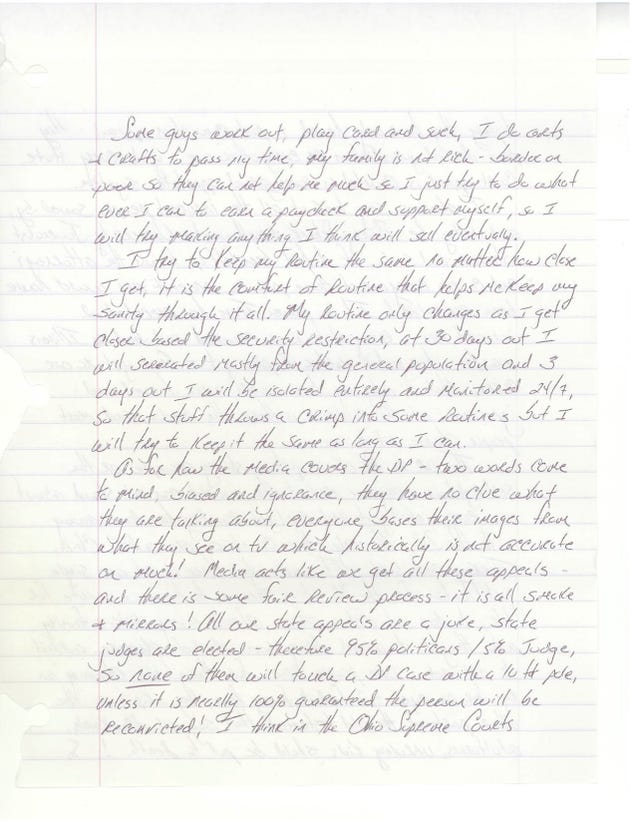 Some guys work out, play card and such, I do arts
+ crafts to pass my time, my family is not rich - border on
poor so they can not help me much so I just try to do what
ever I can to earn a paycheck and support myself, so I
will try making anything I think will sell eventualy.
I try to keep my routine the same no matter how close
I get, it is the comfort of routine that helps me keep my
sanity through it all. My routine only changes as I get
closer based the security restriction, at 30 days out I
will seperated mostly from the general population and 3
days out I will be isolated entirely and monitored 24/7,
so that stuff throws a crimp into some routines but I
will try to keep it the same as long as I can.
As for how the media covers the DP - two words come
to mind, biased and ignorance, they have no clue what
they are talking about, everyone bases their images from
what they see on tv which historically is not accurate
on much! Media acts like we get all these appeals -
and there is some fair review process - it is all smoke
+ mirrors! All our state appeals are a joke, state
judges are elected - therefore 95% politicans / 5% Judge,
so none of them will touch a DP case with a 10 ft pole,
unless it is nearly 100% guaranteed the person will be
reconvicted! I think in the Ohio Supreme Courts